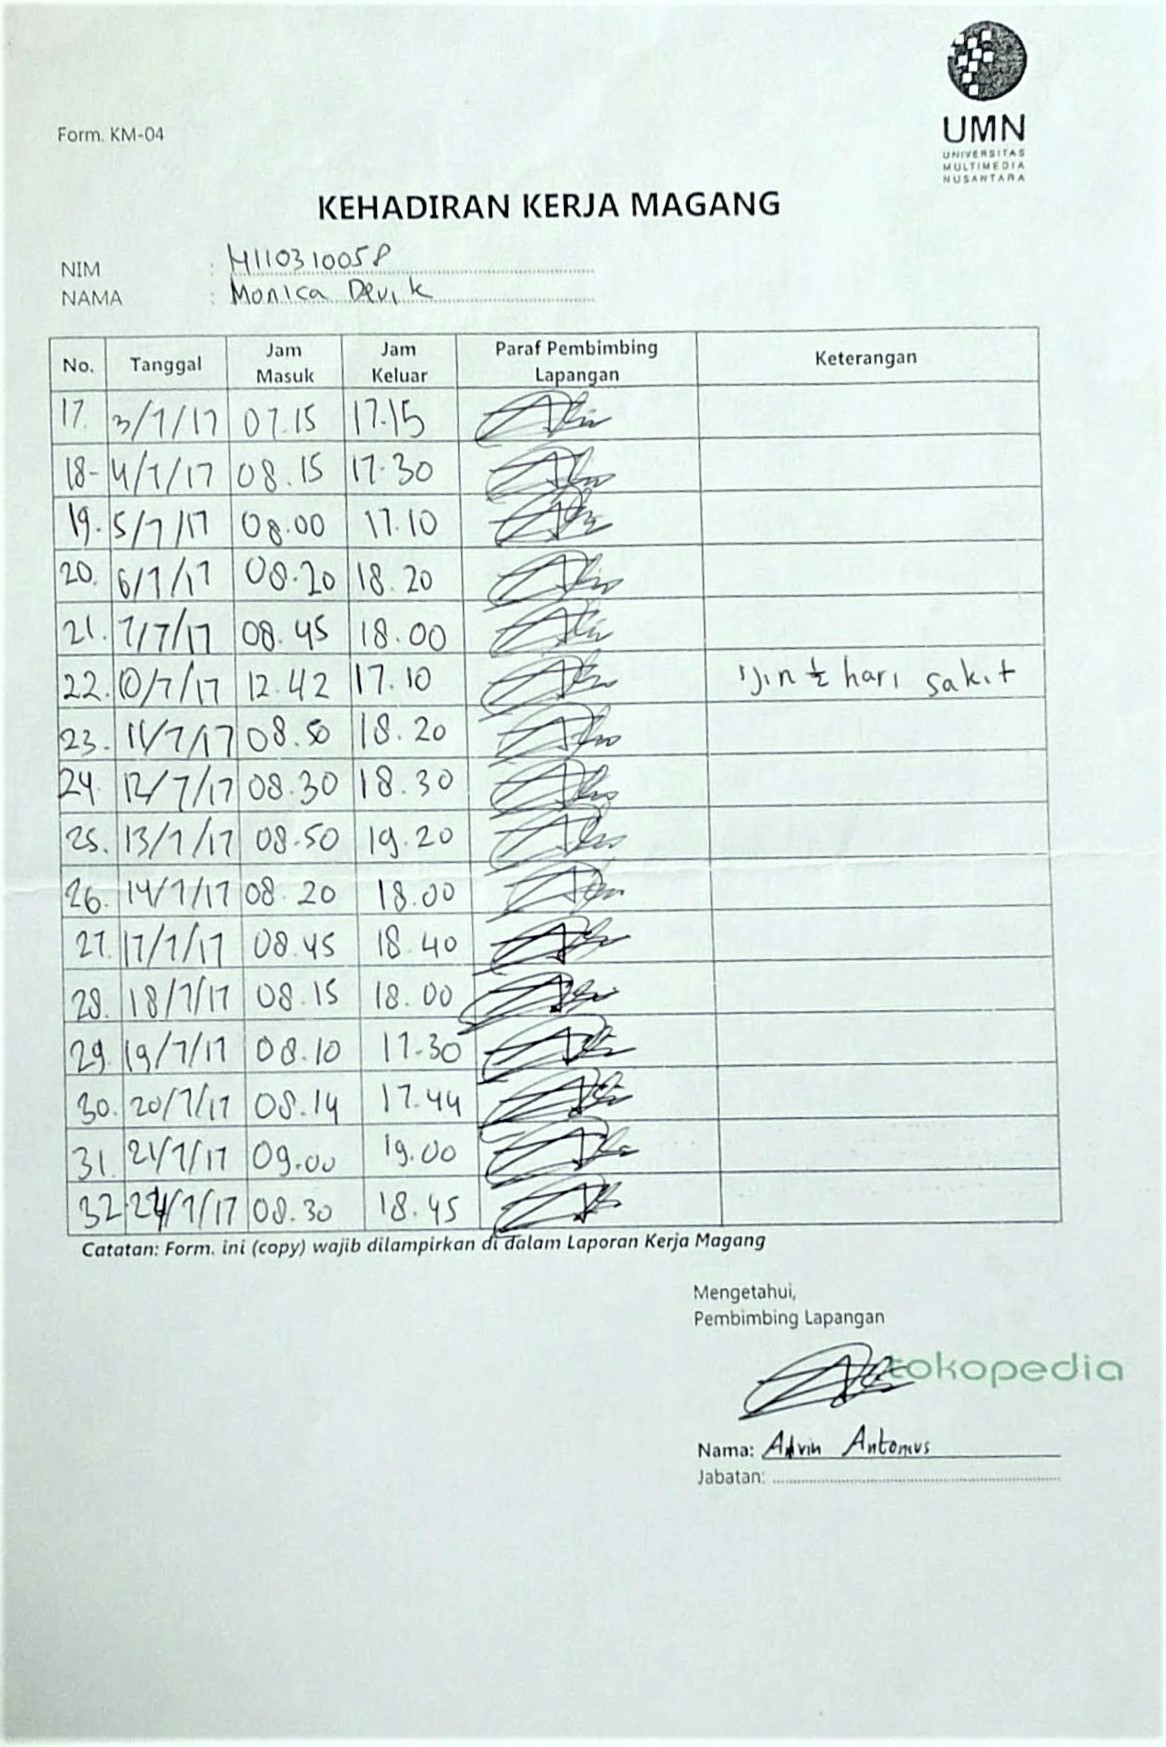 UMN
UNIVERSITAS
MULTIMEDIA
NUSANTARA
Form. KM-04
KEHADIRAN KERJA MAGANG
NIM : 14110310058
NAMA : Monica Devi K
No. Tanggal Jam Masuk Jam Keluar Paraf Pembimbing Lapangan Keterangan
17. 3/7/17 07.15 17.15
18- 4/7/17 08.15 17.30
19. 5/7/17 08.00 17.10
20. 6/7/17 08.20 18.20
21. 7/7/17 08.45 18.00
22. 10/7/17 12.42 17.10 ijin ½ hari sakit
23. 11/7/17 08.50 18.20
24. 12/7/17 08.30 18.30
25. 13/7/17 08.50 19.20
26. 14/7/17 08.20 18.00
27. 17/7/17 08.45 18.40
28. 18/7/17 08.15 18.00
29. 19/7/17 08.10 17.30
30. 20/7/17 08.14 17.44
31. 21/7/17 09.00 19.00
32. 24/7/17 08.30 18.45
Catatan: Form. ini (copy) wajib dilampirkan di dalam Laporan Kerja Magang
Mengetahui,
Pembimbing Lapangan
tokopedia
Nama: Advin Antonius
Jabatan: